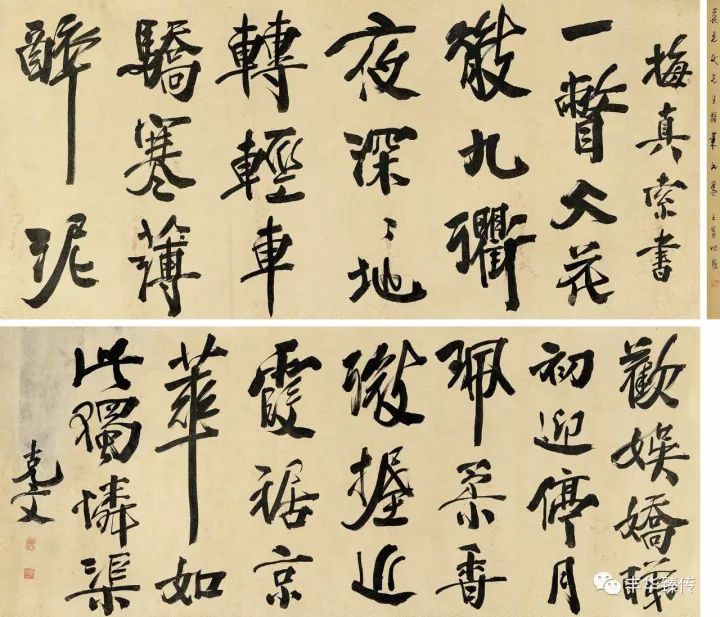 梅真索書
一瞥火花
散九衢
夜深〻地
轉輕車
驕寒薄
醉泥
歡娛嬌睇
初迎停月
珮柔香
微握近
霞裾京
華如
此獨憐渠
克文
中华臻传